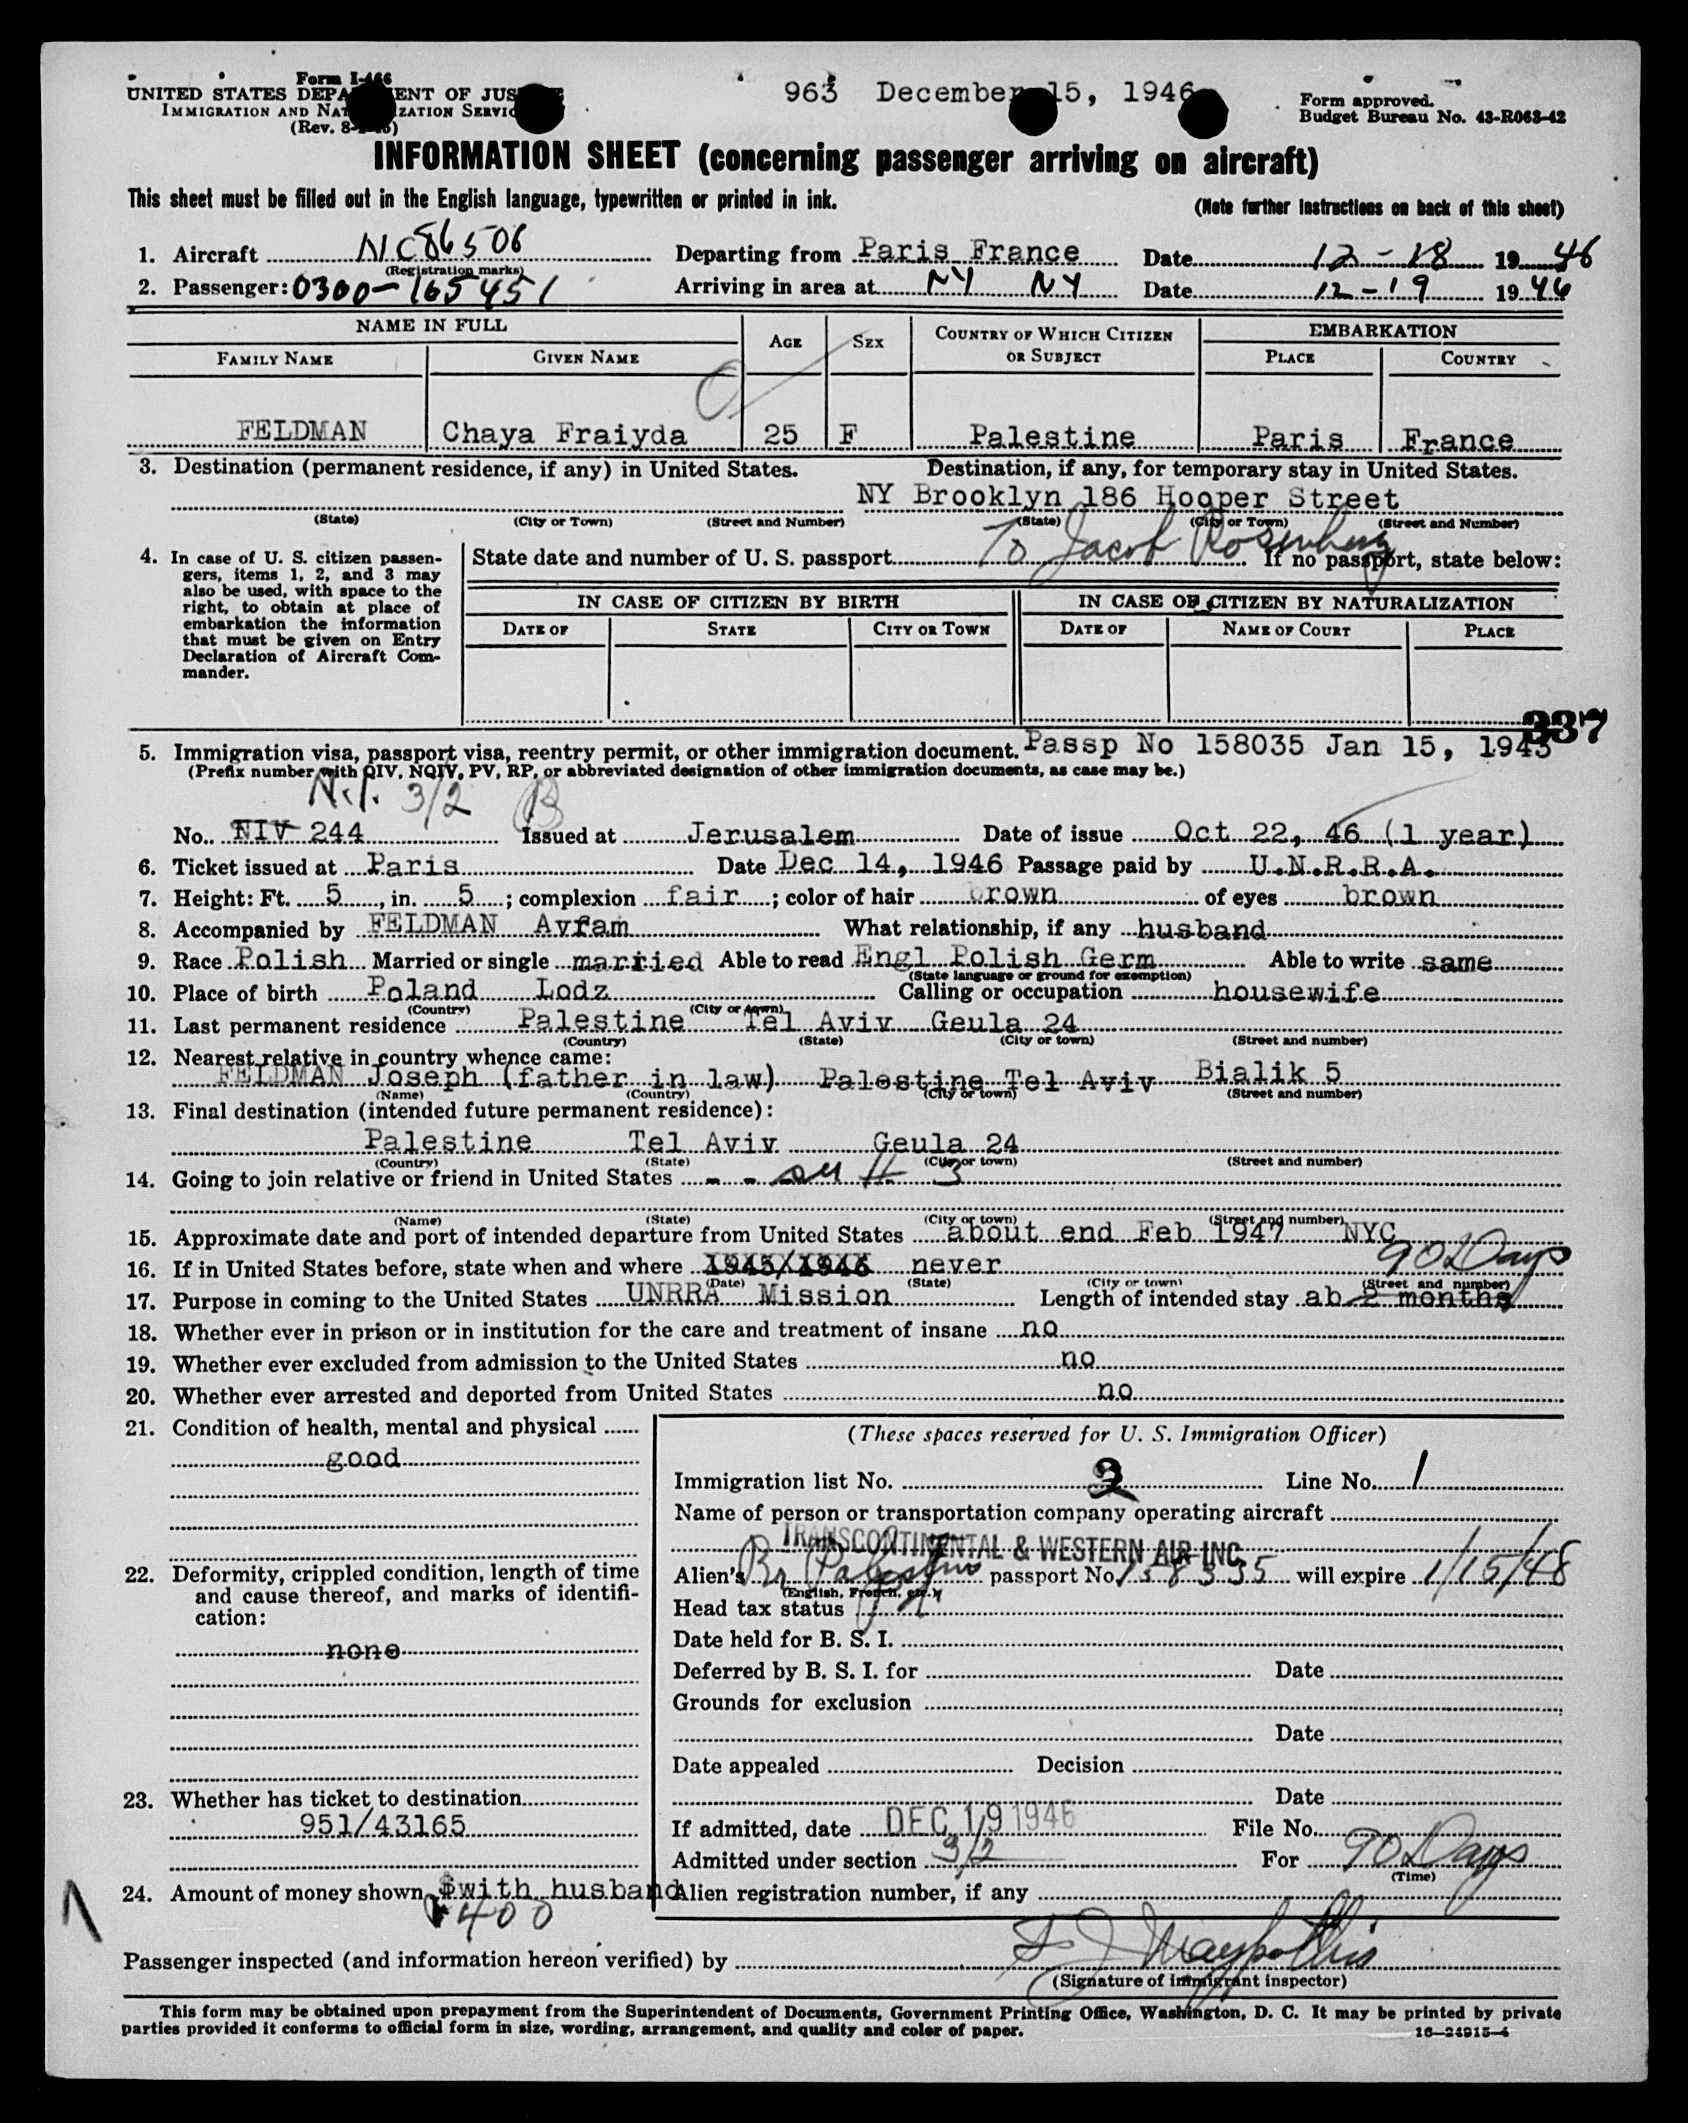 Form I-466
UNITED STATES DEPARTMENT OF JUSTICE
IMMIGRATION AND NATURALIZATION SERVICE
(Rev. 8-
963 December 15, 1946
Form approved.
Budget Bureau No. 43-R063-42
INFORMATION SHEET (concerning passenger arriving on aircraft)
This sheet must be filled out in the English language, typewritten or printed in ink.
(Note further instructions on back of this sheet)
1. Aircraft NC86506 Departing from Paris France Date 12-18 1946
(Registration marks)
2. Passenger: 0300-165451 Arriving in area at NY NY Date 12-19 1946
NAME IN FULL AGE SEX COUNTRY OF WHICH CITIZEN OR SUBJECT EMBARKATION
FAMILY NAME GIVEN NAME PLACE COUNTRY
FELDMAN Chaya Fraiyda 25 F Palestine Paris France
3. Destination (permanent residence, if any) in United States. Destination, if any, for temporary stay in United States.
NY Brooklyn 186 Hooper Street
(State) (City or Town) (Street and Number) (State) (City or Town) (Street and Number)
To Jacob Rosenberg
4. In case of U. S. citizen passengers, items 1, 2, and 3 may also be used, with space to the right, to obtain at place of embarkation the information that must be given on Entry Declaration of Aircraft Commander.
State date and number of U. S. passport If no passport, state below:
IN CASE OF CITIZEN BY BIRTH IN CASE OF CITIZEN BY NATURALIZATION
DATE OF STATE CITY OR TOWN DATE OF NAME OF COURT PLACE
337
5. Immigration visa, passport visa, reentry permit, or other immigration document. Passp No 158035 Jan 15, 1943
(Prefix number with QIV, NQIV, PV, RP, or abbreviated designation of other immigration documents, as case may be.)
N.I. 3/2 B
No. NIV 244 Issued at Jerusalem Date of issue Oct 22, 46 (1 year)
6. Ticket issued at Paris Date Dec 14, 1946 Passage paid by U.N.R.R.A.
7. Height: Ft. 5, in. 5; complexion fair; color of hair brown of eyes brown
8. Accompanied by FELDMAN Avram What relationship, if any husband
9. Race Polish Married or single married Able to read Engl Polish Germ Able to write same
(State language or ground for exemption)
10. Place of birth Poland Lodz Calling or occupation housewife
(Country) (City or town)
11. Last permanent residence Palestine Tel Aviv Geula 24
(Country) (State) (City or town) (Street and number)
12. Nearest relative in country whence came:
FELDMAN Joseph (father in law) Palestine Tel Aviv Bialik 5
(Name) (Country) (City or town) (Street and number)
13. Final destination (intended future permanent residence):
Palestine Tel Aviv Geula 24
(Country) (State) (City or town) (Street and number)
14. Going to join relative or friend in United States - - see # 3
(Name) (State) (City or town) (Street and number)
15. Approximate date and port of intended departure from United States about end Feb 1947 NYC
90 Days
16. If in United States before, state when and where 1945/1946 never
(Date) (State) (City or town) (Street and number)
17. Purpose in coming to the United States UNRRA Mission Length of intended stay ab 2 months
18. Whether ever in prison or in institution for the care and treatment of insane no
19. Whether ever excluded from admission to the United States no
20. Whether ever arrested and deported from United States no
21. Condition of health, mental and physical
good
22. Deformity, crippled condition, length of time and cause thereof, and marks of identification:
none
23. Whether has ticket to destination
951/43165
24. Amount of money shown $with husband
$400
(These spaces reserved for U. S. Immigration Officer)
Immigration list No. 2 Line No. 1
Name of person or transportation company operating aircraft
TRANSCONTINENTAL & WESTERN AIR INC
Alien's Br Palestine passport No. 158335 will expire 1/15/48
(English, French, etc.)
Head tax status
Date held for B. S. I.
Deferred by B. S. I. for Date
Grounds for exclusion
Date
Date appealed Decision
Date
If admitted, date DEC 19 1946 File No.
Admitted under section 3/2 For 90 Days
(Time)
Alien registration number, if any
Passenger inspected (and information hereon verified) by
(Signature of immigrant inspector)
This form may be obtained upon prepayment from the Superintendent of Documents, Government Printing Office, Washington, D. C. It may be printed by private
parties provided it conforms to official form in size, wording, arrangement, and quality and color of paper.
16-24915-4